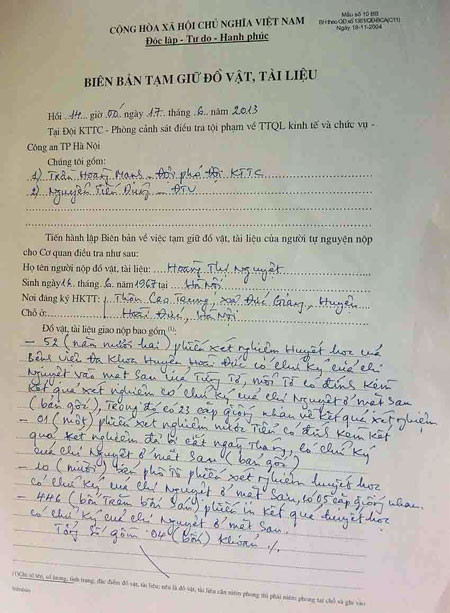 Mẫu số 10 BB
BH theo QĐ số 1351/QĐ-BCA(C11)
Ngày 18-11-2004
CỘNG HÒA XÃ HỘI CHỦ NGHĨA VIỆT NAM
Độc lập - Tự do - Hạnh phúc
BIÊN BẢN TẠM GIỮ ĐỒ VẬT, TÀI LIỆU
Hồi 14 giờ 00 ngày 17 tháng 6 năm 2013
Tại Đội KTTC - Phòng cảnh sát điều tra tội phạm về TTQL kinh tế và chức vụ -
Công an TP Hà Nội
Chúng tôi gồm:
1) Trần Hoàng - Đội phó đội KTTC
2) Nguyễn Tiến Dũng - ĐTV
Tiến hành lập Biên bản về việc tạm giữ đồ vật, tài liệu của người tự nguyện nộp
cho Cơ quan điều tra như sau:
Họ tên người nộp đồ vật, tài liệu: Hoàng Thị Nguyệt
Sinh ngày 16 tháng 6 năm 1967 tại Hà Nội
Nơi đăng ký HKTT: Thôn Cao Trung, xã Đức Giang, Huyện
Chỗ ở: Hoài Đức, Hà Nội
Đồ vật, tài liệu giao nộp bao gồm (1):
- 52 (năm mươi hai) phiếu xét nghiệm Huyết học của
Bệnh viện Đa Khoa Huyện Hoài Đức có chữ ký của chị
Nguyệt vào mặt sau của từng tờ, mỗi tờ có đính kèm
kết quả xét nghiệm có chữ ký của chị Nguyệt ở mặt sau
(bản gốc), trong đó có 23 cặp giống nhau về kết quả xét nghiệm
- 01 (một) phiếu xét nghiệm nước tiểu có đính kèm kết
quả xét nghiệm đã bị cắt ngày tháng, có chữ ký
của chị Nguyệt ở mặt sau (bản gốc)
- 10 (mười) bản phô tô phiếu xét nghiệm huyết học
có chữ ký của chị Nguyệt ở mặt sau, có 05 cặp giống nhau.
- 446 (bốn trăm bốn sáu) phiếu in kết quả huyết học
có chữ ký của chị Nguyệt ở mặt sau.
Tổng số gồm 04 (bốn) khoản ./.
(1) Ghi số tên, số lượng, tình trạng, đặc điểm đồ vật, tài liệu; nếu là đồ vật, tài liệu cần niêm phong thì phải niêm phong tại chỗ và ghi vào